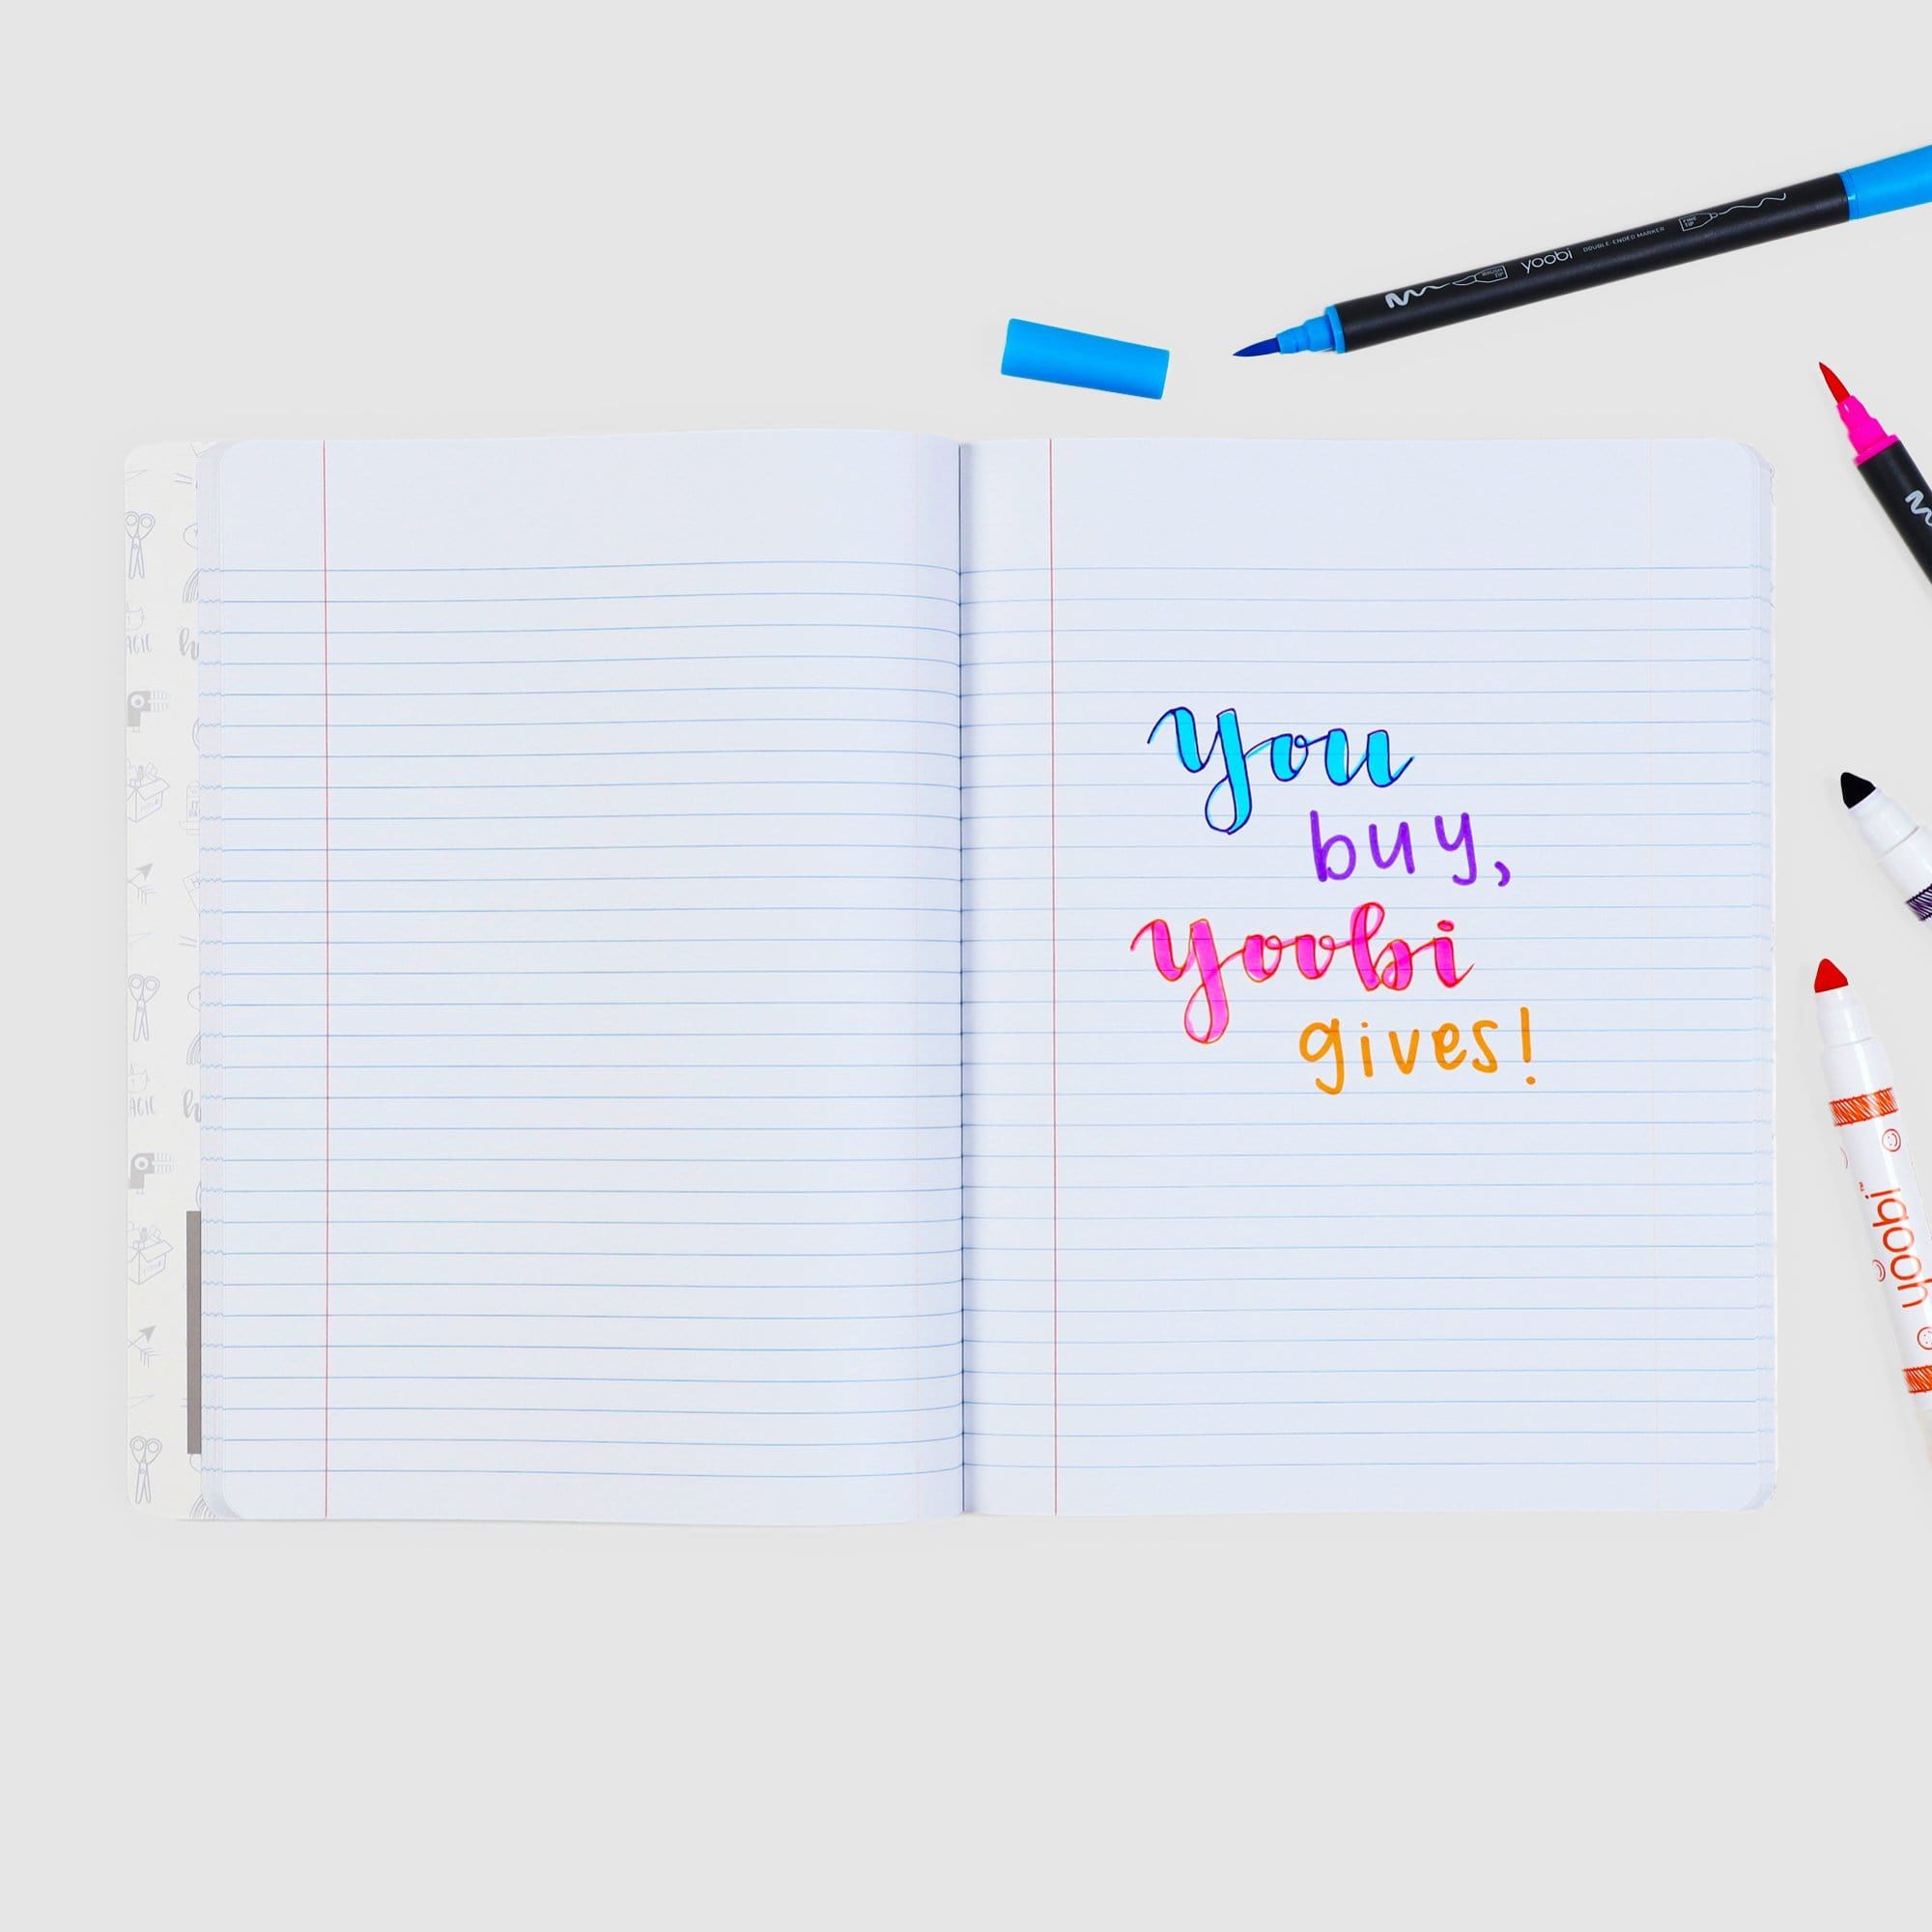 yoobi DOUBLE-ENDED MARKER
You
buy,
yoobi
gives!
yoobi
AGIC
AGIC